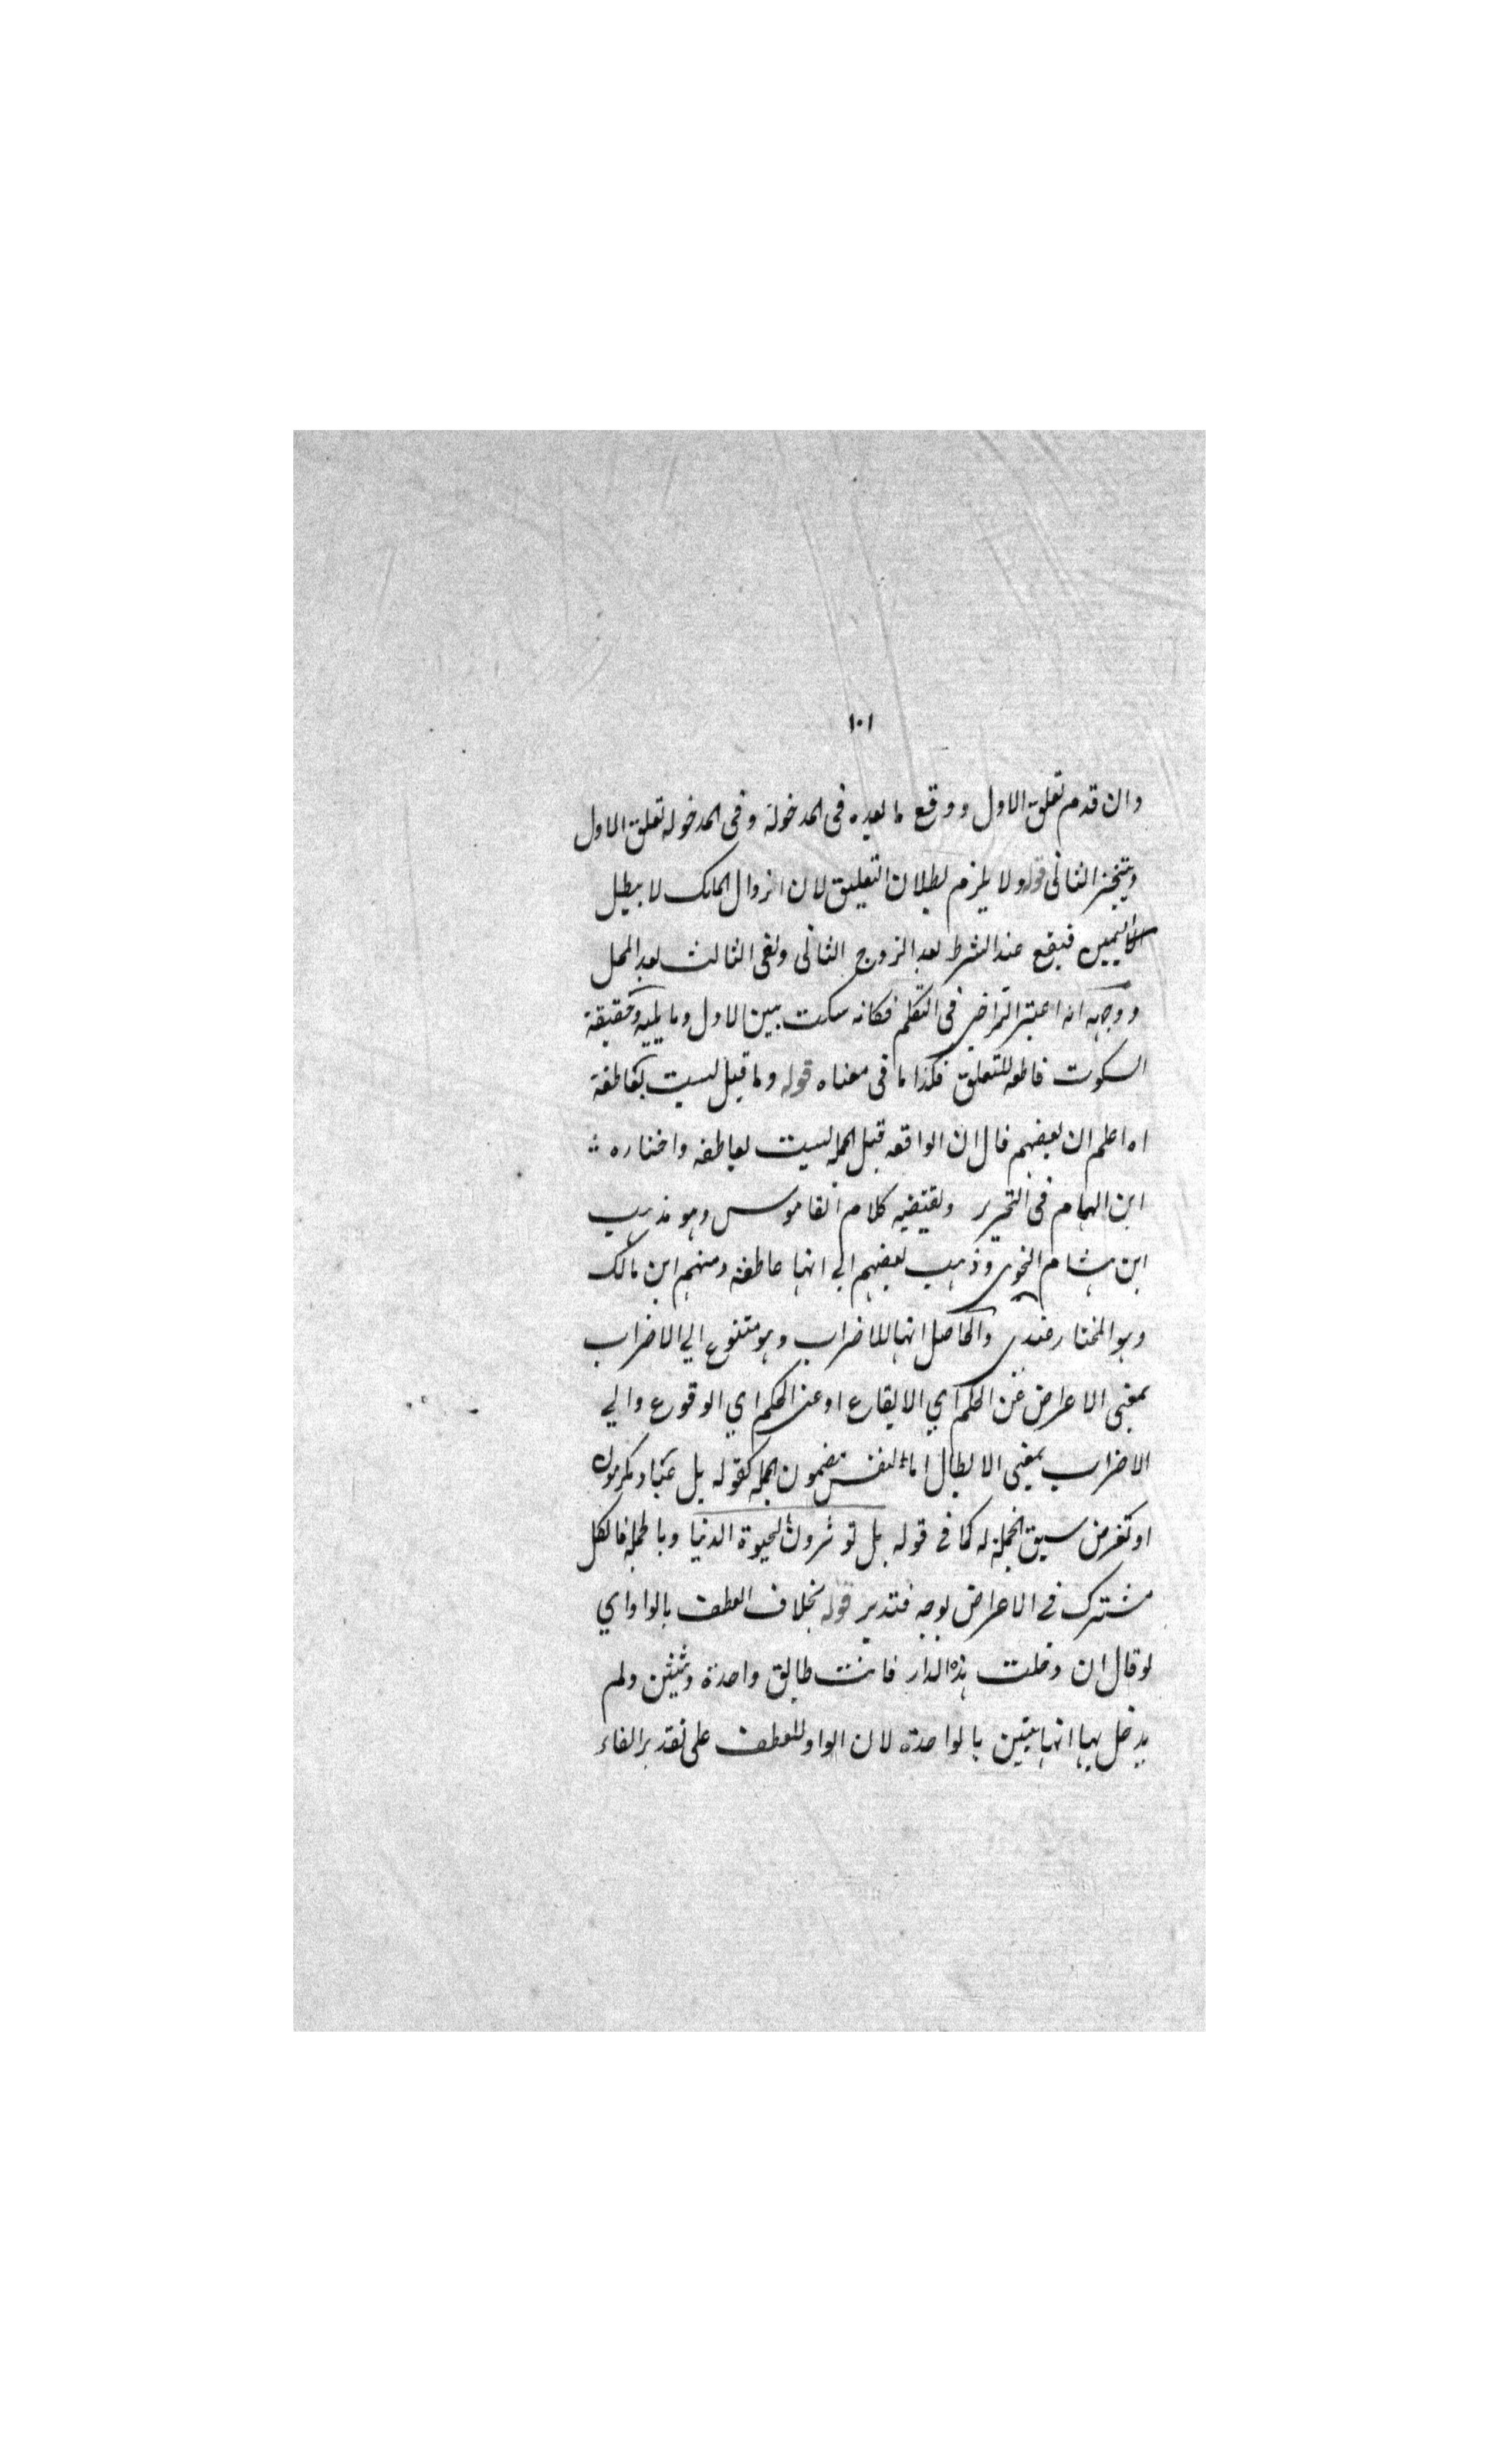 ١٠١
وان قدم تعلق الاول ووقع ما بعده فى المدخولة وفى المدخوله تعلق الاول
ويتنجز الثانى قوله ولا يلزم بطلان التعليق لان زوال الملك لا يبطل
اليمين فيقع عند الشرط بعد الزوج الثانى ولغى الثالث لعدم المحل
ووجهه انه اعتبر التراخى فى التكلم فكانه سكت بين الاول وما يليه وحقيقة
السكوت قاطعه للتعلق فكذا ما فى معناه قوله وما قيل ليست بعاطفة
اه اعلم ان بعضهم قال ان الواقعه قبل الجمله ليست بعاطفه واختاره
ابن الهمام فى التحرير ويقتضيه كلام القاموس وهو مذهب
ابن هشام النحوى وذهب بعضهم الى انها عاطفه ومنهم ابن مالك
وهو المختار عندى والحاصل انها للاضراب وهو متنوع الى الاضراب
بمعنى الاعراض عن الحكم اي الايقاع او عن الحكم اي الوقوع والي
الاضراب بمعنى الابطال اما لنفس مضمون الجمله كقوله بل عباد مكرمون
او لغرض سيق الجملة له كما في قوله بل تؤثرون الحيوة الدنيا وبالجمله فالكل
مشترك في الاعراض بوجه فتدبر قوله بخلاف العطف بالواو اي
لو قال ان دخلت هذه الدار فانت طالق واحدة وثنتين ولم
يدخل بها انها تبين بالواحدة لان الواو للعطف على تقدير الفاء